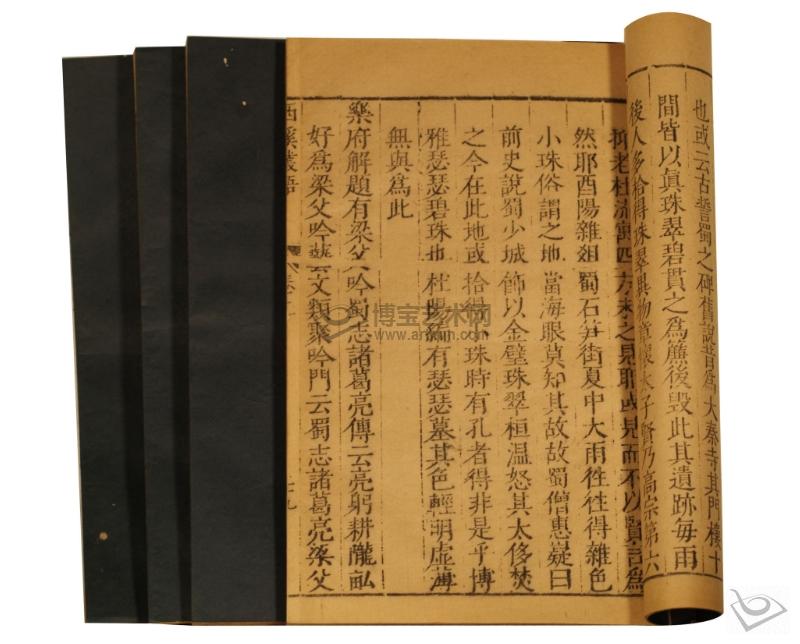 也或云古誓蜀之碑舊說昔爲大秦寺其門樓十
間皆以眞珠翠碧貫之爲簾後毀此其遺跡每雨
後人多拾得珠翠異物章懷太子賢乃高宗第六
抑老杜流寓四方未之見耶或見而不以賢言爲
然耶酉陽雜俎蜀石笋街夏中大雨徃徃得雜色
小珠俗謂之地當海眼莫知其故故蜀僧惠嶷曰
前史說蜀少城飾以金璧珠翠桓温怒其太侈焚
之今在此地或拾得小珠時有孔者得非是乎博
雅瑟瑟碧珠也杜陽編有瑟瑟墓其色輕明虛薄
無與爲此
樂府解題有梁父吟蜀志諸葛亮傳云亮躬耕隴畝
好爲梁父吟藝文類聚吟門云蜀志諸葛亮梁父
西溪叢語
博宝艺术网
www.artxun.com